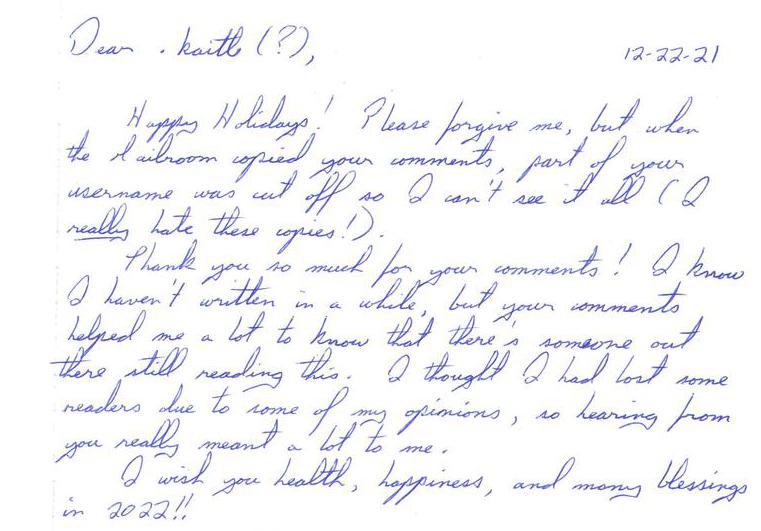 Dear .kaitle(?),
12-22-21
Happy Holidays! Please forgive me, but when
the Mailroom copied your comments, part of your
username was cut off so I can't see it all (I
really hate these copies!).
Thank you so much for your comments! I know
I haven't written in a while, but your comments
helped me a lot to know that there's someone out
there still reading this. I thought I had lost some
readers due to some of my opinions, so hearing from
you really meant a lot to me.
I wish you health, happiness, and many blessings
in 2022!!